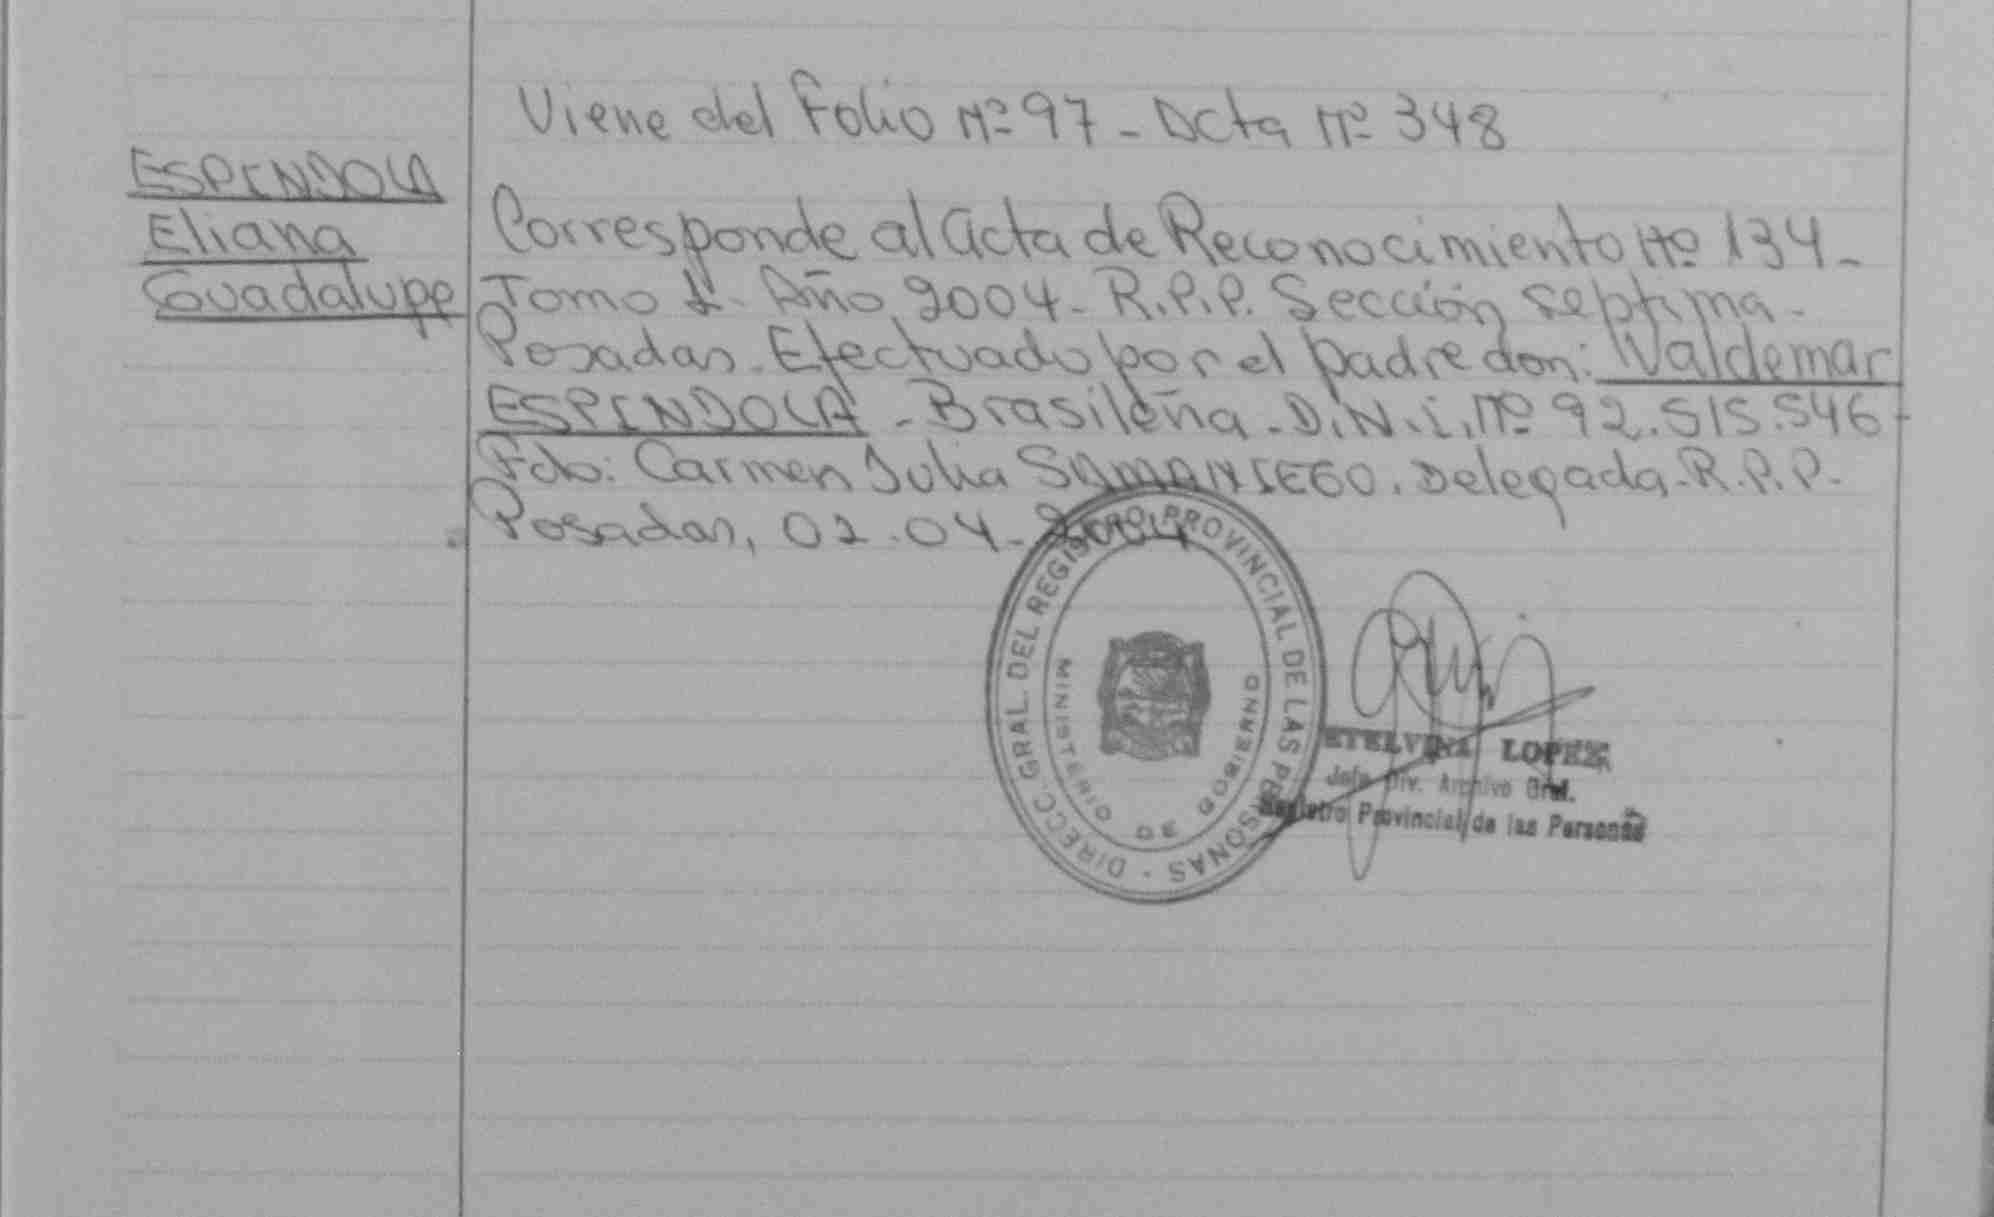 Viene del Folio Nº 97 - Acta Nº 348
ESPINDOLA
Eliana
Guadalupe
Corresponde al acta de Reconocimiento Nº 134 -
Tomo 1º - Año 2004 - R.P.P. Sección septima -
Posadas. Efectuado por el padre don: Waldemar
ESPINDOLA - Brasileña - D.N.I. Nº 92.515.546 -
Fdo: Carmen Julia SAMANIEGO. Delegada - R.P.P. -
Posadas, 02.04-2004
DIRECC. GRAL. DEL REGISTRO PROVINCIAL DE LAS PERSONAS -
MINISTERIO DE GOBIERNO
ETELVINA LOPEZ
Jefe Div. Archivo Gral.
Registro Provincial de las Personas